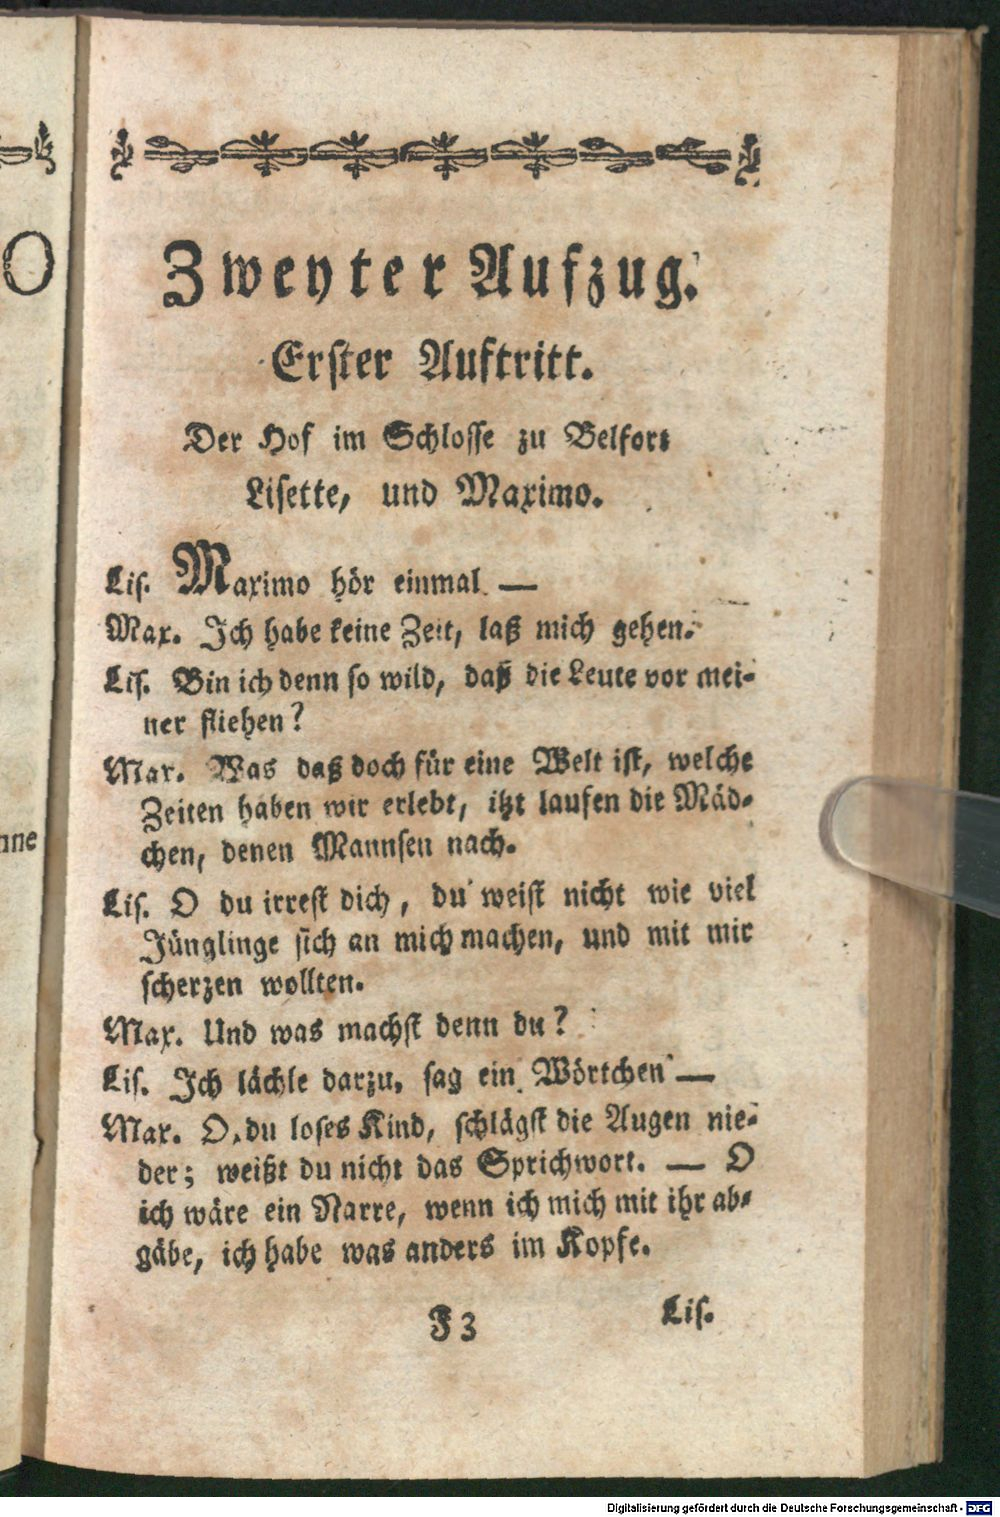 Zweyter Aufzug.
Erster Auftritt.
Der Hof im Schlosse zu Belfort
Lisette, und Maximo.
Lis. Maximo hör einmal —
Max. Ich habe keine Zeit, laß mich gehen.
Lis. Bin ich denn so wild, daß die Leute vor mei-
ner fliehen?
Max. Was daß doch für eine Welt ist, welche
Zeiten haben wir erlebt, itzt laufen die Mäd-
chen, denen Mannsen nach.
Lis. O du irrest dich, du weist nicht wie viel
Jünglinge sich an mich machen, und mit mir
scherzen wollten.
Max. Und was machst denn du?
Lis. Ich lächle darzu, sag ein Wörtchen —
Max. O, du loses Kind, schlägst die Augen nie-
der; weißt du nicht das Sprichwort. — O
ich wäre ein Narre, wenn ich mich mit ihr ab-
gäbe, ich habe was anders im Kopfe.
F 3
Lis.
O
nne
Digitalisierung gefördert durch die Deutsche Forschungsgemeinschaft - DFG